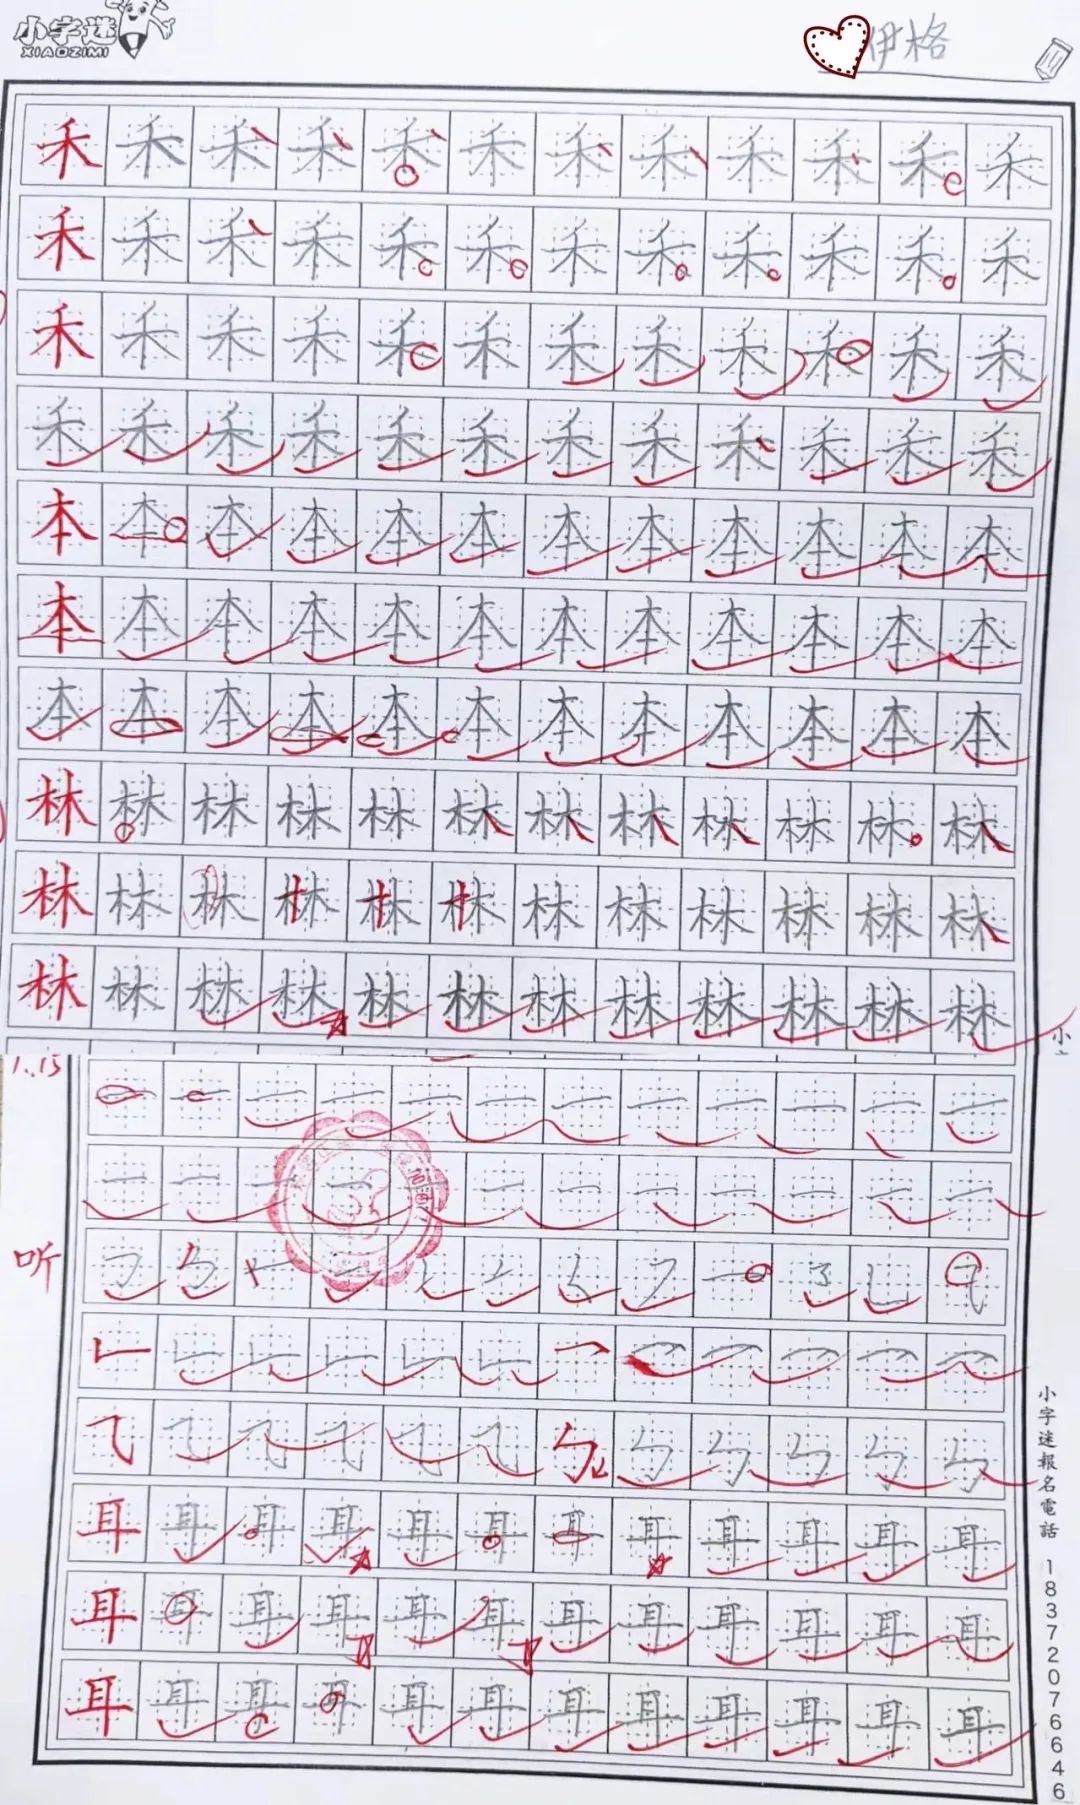 小字迷
XIAOZIMI
伊格
禾禾禾禾禾禾禾禾禾禾禾禾
禾禾禾禾禾禾禾禾禾禾禾禾
禾禾禾禾禾禾禾禾禾禾禾禾
禾禾禾禾禾禾禾禾禾禾禾禾
本本本本本本本本本本本本
本本本本本本本本本本本本
本本本本本本本本本本本本
林林林林林林林林林林林林
林林林林林林林林林林林林
林林林林林林林林林林林林
小
1.15
一一一一一一一一一一一一
一一一一一一一一一一一一
听
耳耳耳耳耳耳耳耳耳耳耳耳
耳耳耳耳耳耳耳耳耳耳耳耳
耳耳耳耳耳耳耳耳耳耳耳耳
小字迷報名電話 18372076646